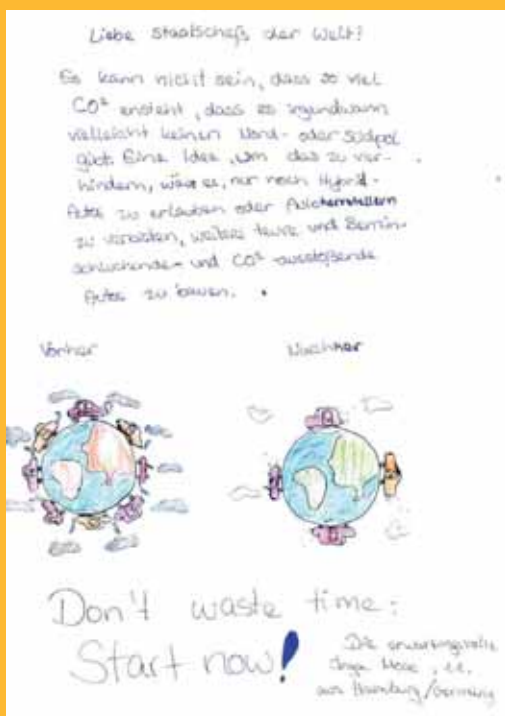 Liebe Staatschefs der Welt!
Es kann nicht sein, dass so viel
CO² ensteht, dass es irgendwann
vielleicht keinen Nord- oder Südpol
gibt. Eine Idee, um das zu ver-
hindern, wäre es, nur noch Hybrid-
Autos zu erlauben oder Autoherstellern
zu verbieten, weitere teure und Benzin-
schluckende- und CO² -ausstoßende
Autos zu bauen.
Vorher Nachher
Don't waste time:
Start now!
Die erwartungsvolle
aus Hamburg/Germany